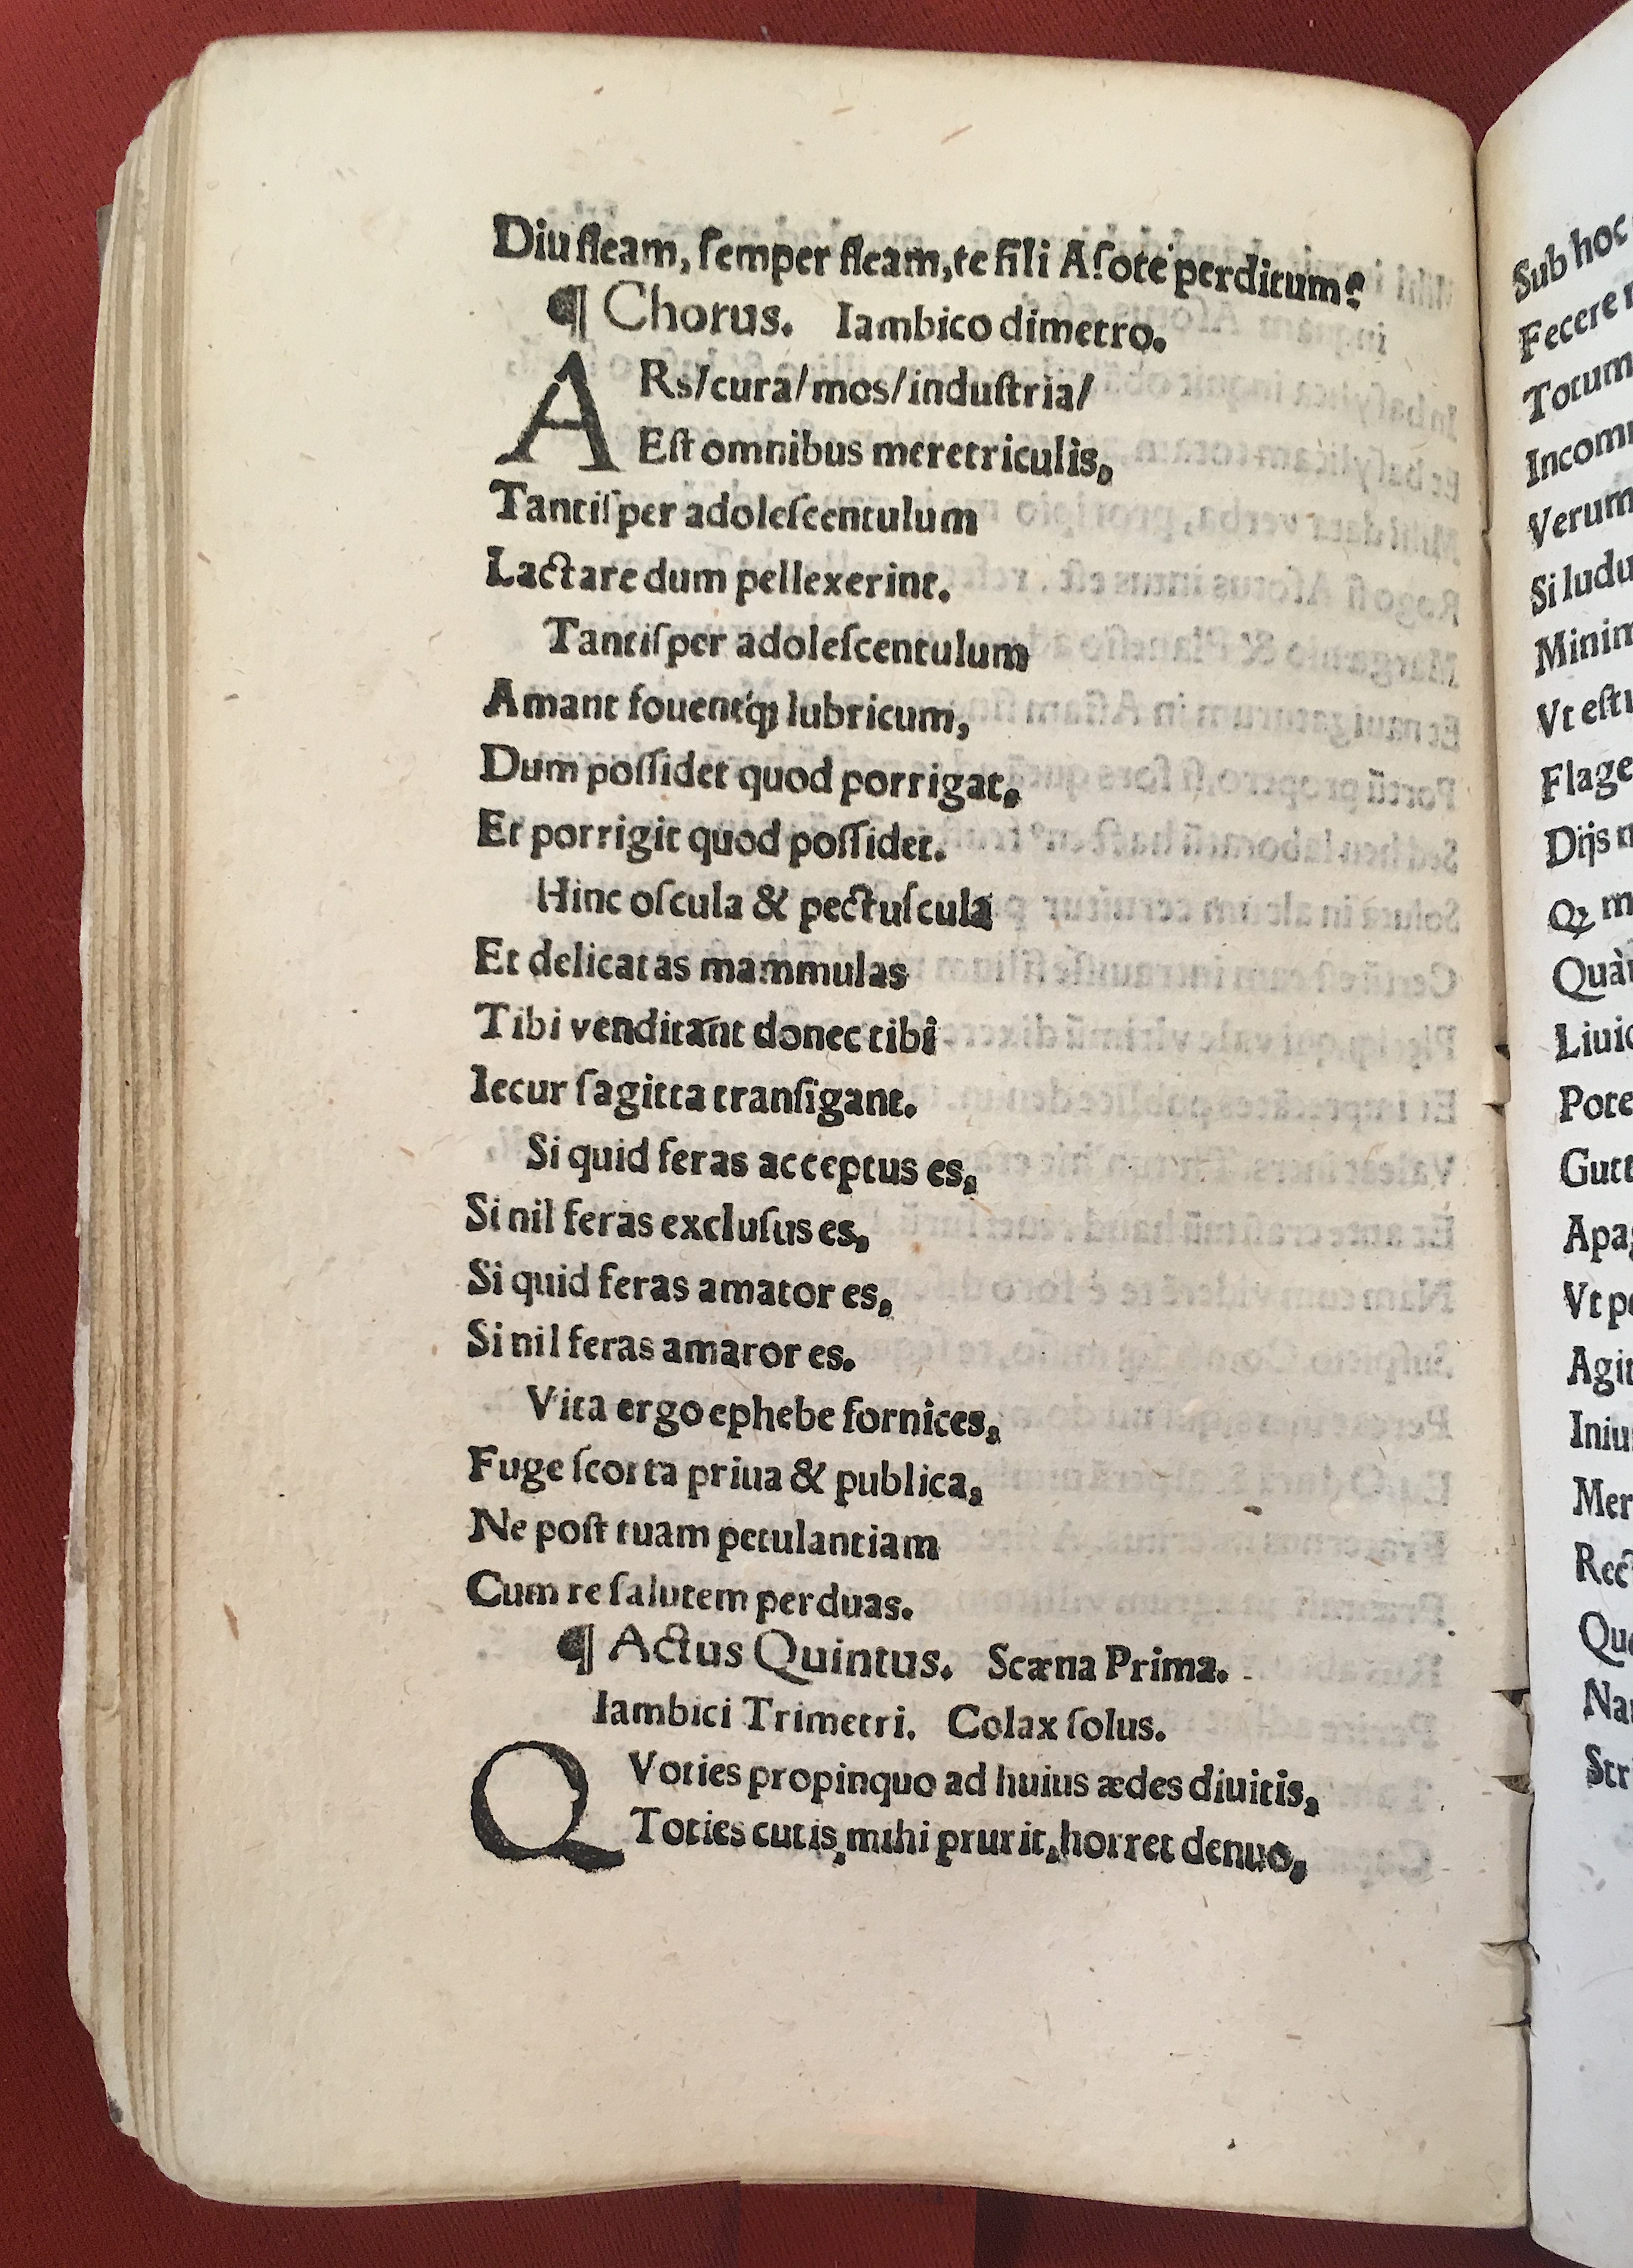 Diu fleam, ſemper fleam, te fili Aſote perditum?
¶ Chorus. Iambico dimetro.
ARs/cura/mos/induſtria/
Eſt omnibus meretriculis,
Tantiſper adoleſcentulum
Lactare dum pellexerint.
Tantiſper adoleſcentulum
Amant fouentq; lubricum,
Dum poſſidet quod porrigat,
Et porrigit quod poſſidet.
Hinc oſcula & pectuſcula
Et delicatas mammulas
Tibi venditant donec tibi
Iecur ſagitta tranſigant.
Si quid feras acceptus es,
Si nil feras excluſus es,
Si quid feras amator es,
Si nil feras amaror es.
Vita ergo ephebe fornices,
Fuge ſcorta priua & publica,
Ne poſt tuam petulantiam
Cum re ſalutem perduas.
¶ Actus Quintus. Scæna Prima.
Iambici Trimetri. Colax ſolus.
QVoties propinquo ad huius ædes diuitis,
Toties cutis mihi prurit, horret denuo,
Sub hoc
Fecere
Totum
Verum
Si ludu
Vt eſtu
Flage
Dijs
Q;
Liuid
Pote
Gutt
Apag
Vt
Agit
Iniu
Mer
Rect
Que
Str